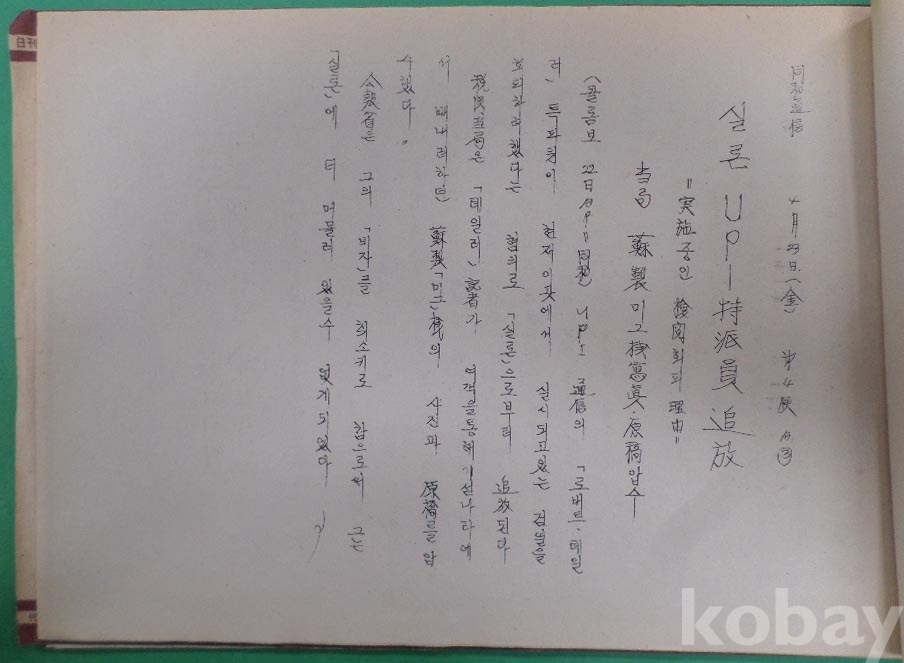 同和通信 4月23日(金) 第4便 A③
실론 UPI 特派員 追放
"実施중인 検閲회피 理由"
当局 蘇製미그機寫眞·原稿압수
(콜롬보 22日 UPI=同和) UPI 通信의 「로버트·데일
러」 특파원이 현재 이곳에서 실시되고있는 검열을
회피하려했다는 혐의로 「실론」으로부터 追放된다
税関当局은 「데일러」記者가 여객을통해 이 나라에
서 내보내려하던 蘇製「미그」機의 사진과 原稿를 압
수했다.
公報省은 그의 「비자」를 취소키로 함으로써 그는
「실론」에 더 머물러 있을수 없게 되었다
日刊
kobay